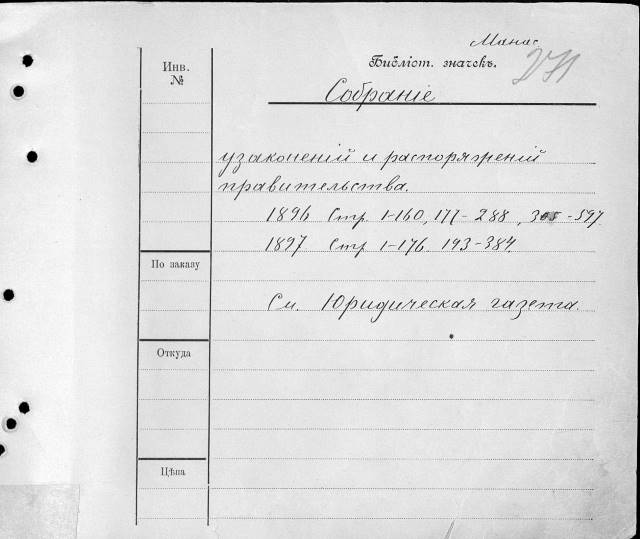 Манас.
Инв.
№
Библіот. значекъ.
271
Собраніе
узаконеній и распоряженій
правительства.
1896 Стр. 1-160, 177-288, 305-597.
1897 Стр. 1-176. 193-384.
По заказу
См. Юридическая газета.
Откуда
Цѣна